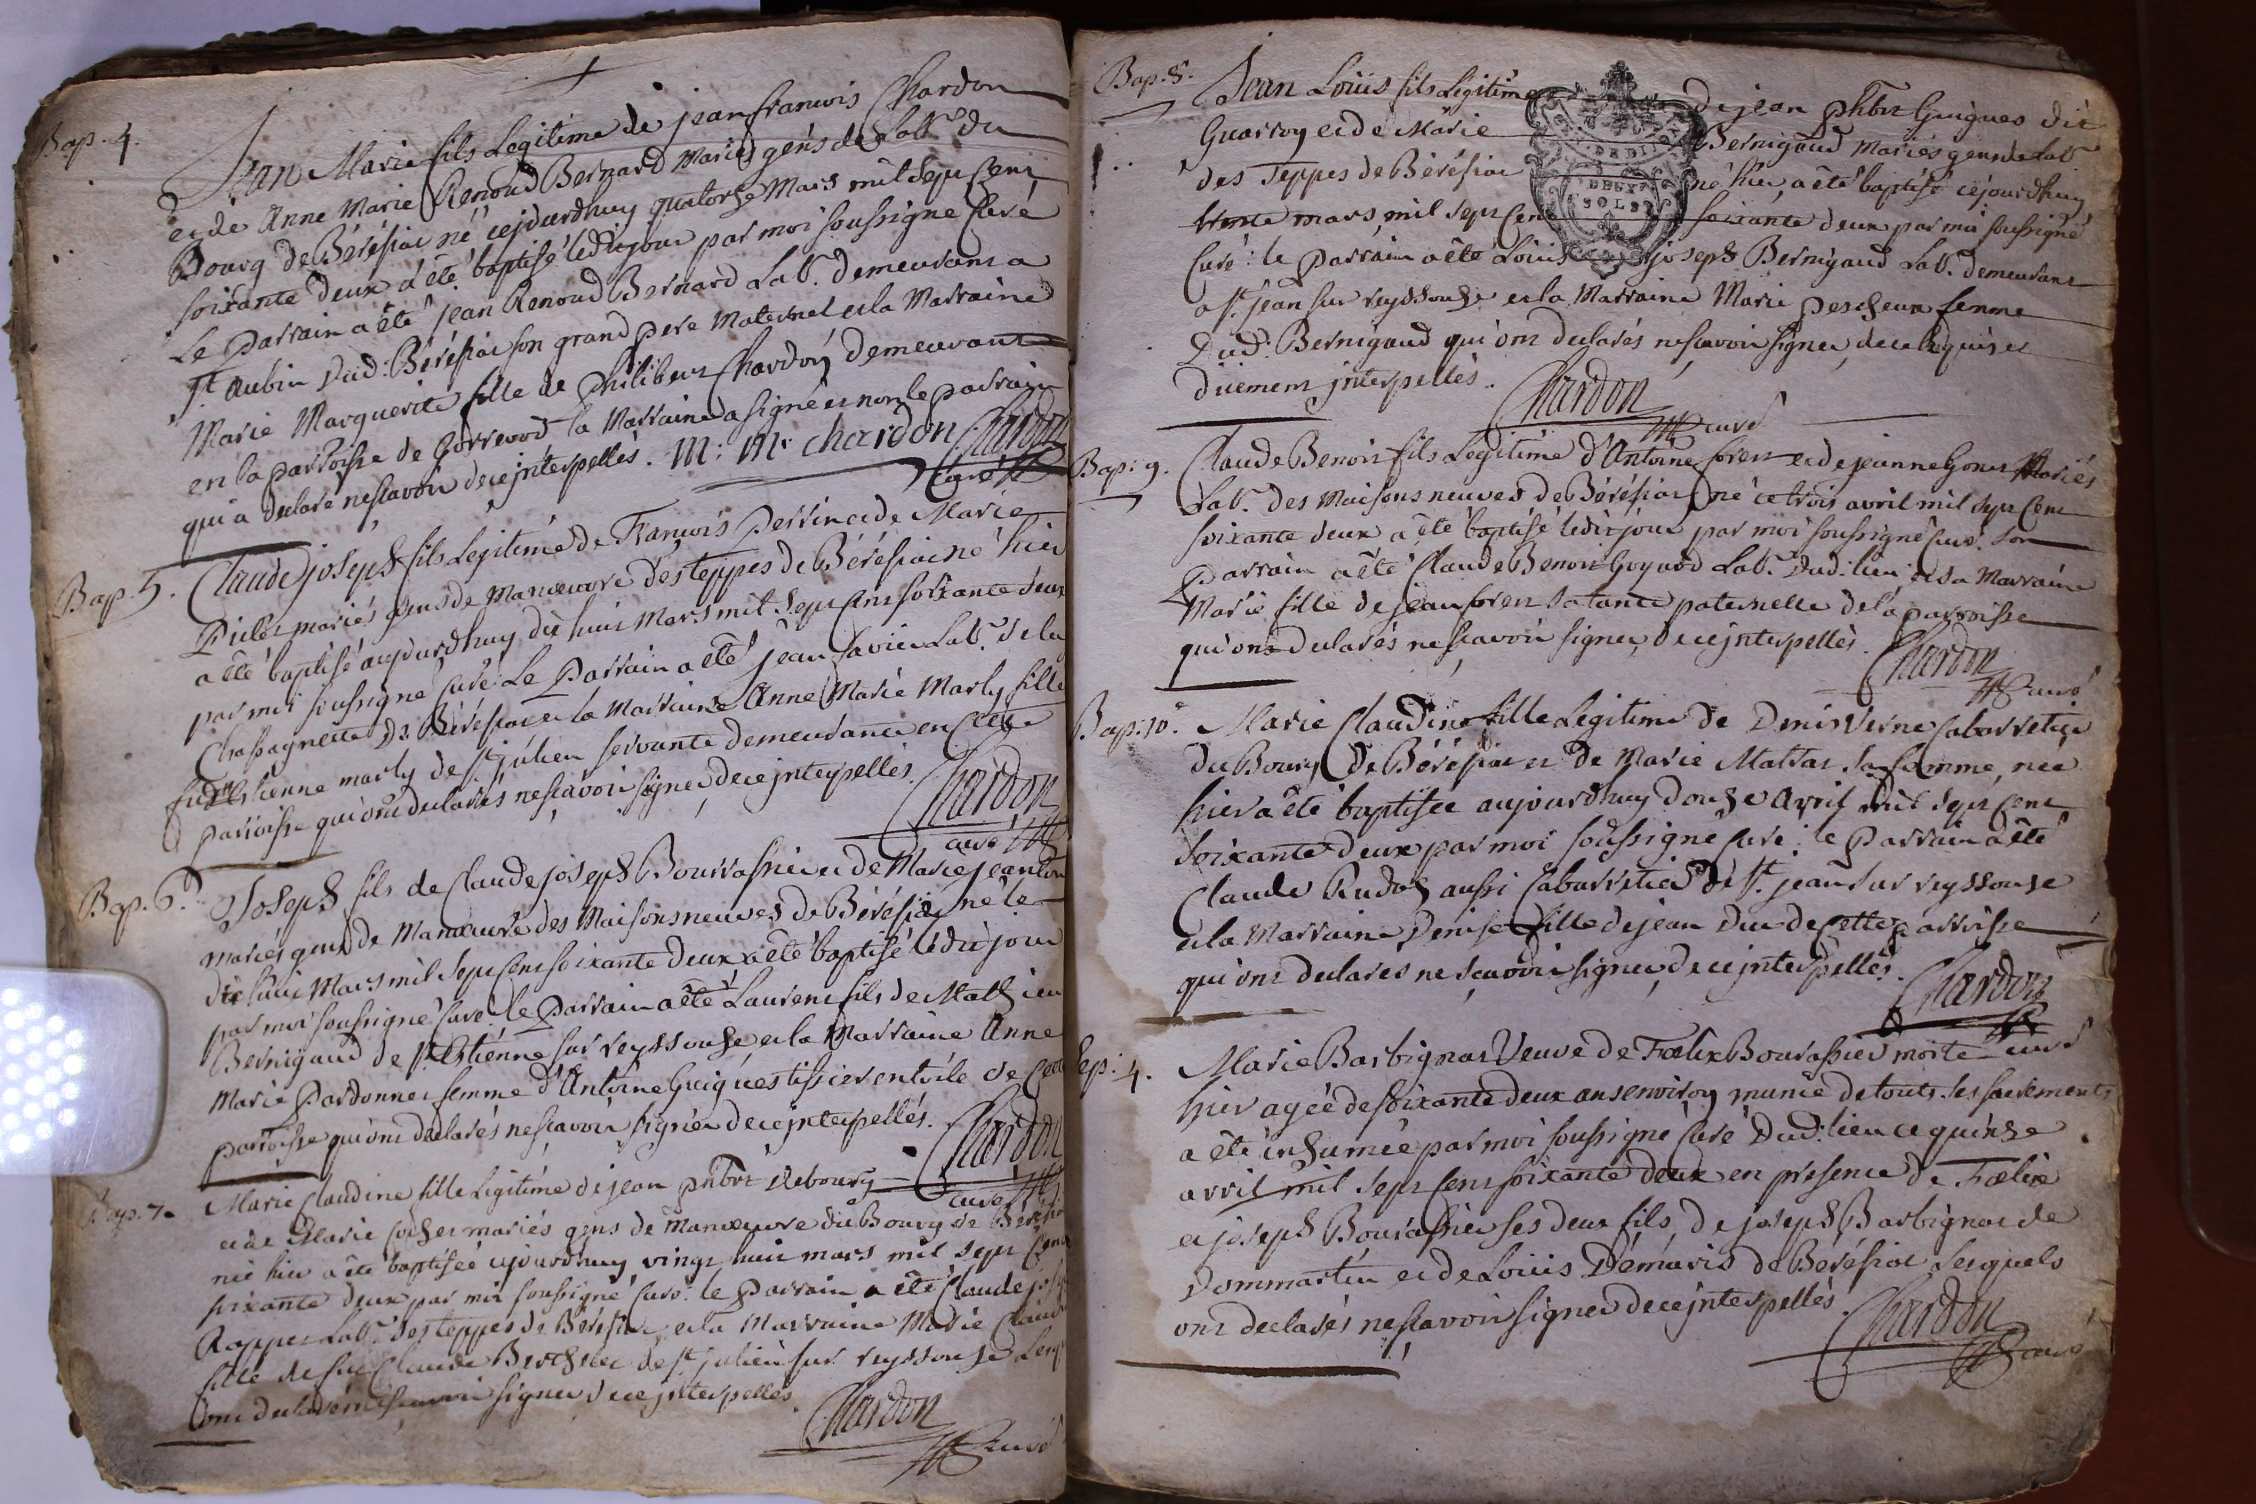 Bap. 4.
Jean Marie fils Legitime de jean francois Chardon
et de Anne Marie Renoud Bernard Mariés gens de Lab.r du
Bourg de Béréfiac né cejourdhuy quatorze Mars mil Sept Cent
soixante deux a été baptisé ledit jour par moi soussigné Curé
Le Parrain a été jean Renoud Bernard Lab.r demeurant a
St Aubin Dud: Béréfiac son grand pere Maternel et la Marraine
Marie Marguerite fille de Philibert Chardon demeurant
en la parroisse de Gorrevod la Marraine a signé et non le parrain
qui a declaré ne scavoir de ce jnterpellés. M: M.e chardon Chardon
Curé
Bap. 5.
Claude joseph fils Legitime de Francois Perrin et de Marie
mariés gens de Manoeuvre des teppes de Béréfiac né hier
a été baptisé aujourdhuy dix huit Mars mil Sept Cent soixante deux
par moi soussigné Curé: Le Parrain a été jean Lab.r de la
Chassagnette de Béréfiac et la Marraine Anne Marie Marly fille
feu Estienne marly de St julien servante demeurante en Cette
parroisse qui ont declarés ne scavoir signer de ce jnterpellés.
Chardon
curé
Bap. 6.
Joseph fils de Claude joseph Bourrassier et de Marie jeanton
mariés gens de Manoeuvre des Maisons neuves de Béréfiac né le
dix huit Mars mil Sept Cent soixante deux a été baptisé ledit jour
par moi soussigné Curé: le Parrain a été Laurent fils de Mathieu
Bernigaud de St Estienne sur reyssouze et la Marraine Anne
Marie Pardonnet femme d'Antoine Guigues tissier en toile de Cette
parroisse qui ont declarés ne scavoir signer de ce jnterpellés.
Chardon
curé
Bap. 7.
Marie Claudine fille Legitime de jean phbrt Rebourg
et de Marie Cochet mariés gens de Manoeuvre du Bourg de Béréfiac
née hier a été baptisée cejourdhuy vingt huit mars mil sept Cent
soixante deux par moi soussigné Curé: le Parrain a été Claude
Lab.r des teppes de Béréfiac et la Marraine Marie
fille de feu Claude de St julien sur reyssouze
ont declarés ne scavoir signer de ce jnterpellés.
Chardon
curé
Bap. 8.
Jean Louis fils Legitime de jean phbrt Guigues dit
Guarroy et de Marie Bernigaud Mariés gens de Lab.r
des Teppes de Béréfiac né hier a été baptisé cejourdhuy
trente mars mil sept Cent soixante deux par moi soussigné
Curé: le Parrain a été Louis joseph Bernigaud Lab.r demeurant
DEUX
SOLS
a St jean sur reyssouze et la Marraine Marie Pescheux femme
Dud: Bernigaud qui ont declarés ne scavoir signer, de ce requis et
düement jnterpellés.
Chardon
curé
Bap: 9.
Claude Benoit fils Legitime d'Antoine foret et de jeanne Gonet Mariés
Lab.r des Maisons neuves de Béréfiac né ce trois avril mil sept Cent
soixante deux a été baptisé ledit jour par moi soussigné Curé. Son
Parrain a été Claude Benoit Goyard Lab.r Dud: lieu et sa Marraine
Marie fille de jean foret sa tante paternelle de la parroisse
qui ont declarés ne scavoir signer de ce jnterpellés.
Chardon
curé
Bap: 10.
Marie Claudine fille Legitime de Denis Verne Cabarretier
du Bourg de Béréfiac et de Marie Mattar sa femme, née
hier a été baptisée aujourdhuy douze Avril mil Sept Cent
soixante deux par moi soussigné Curé: le Parrain a été
Claude Rudoz aussi Cabarretier de St jean sur reyssouze
et la Marraine Denise fille de jean Duc de Cette parroisse
qui ont declarés ne scavoir signer, de ce jnterpellés.
Chardon
curé
Sep: 4.
Marie Barbignat Veuve de Fœlix Bourassier morte
hier agée de soixante deux ans environ munie de touts ses sacrements
a été inhumée par moi soussigné Curé Dud: lieu ce quinze
avril mil Sept Cent soixante deux en presence de Fœlix
et joseph Bourassier ses deux fils, de joseph Barbignat de
Dommartin et de Louis Démaris de Beréfiac Lesquels
ont declarés ne scavoir signer de ce jnterpellés.
Chardon
curé